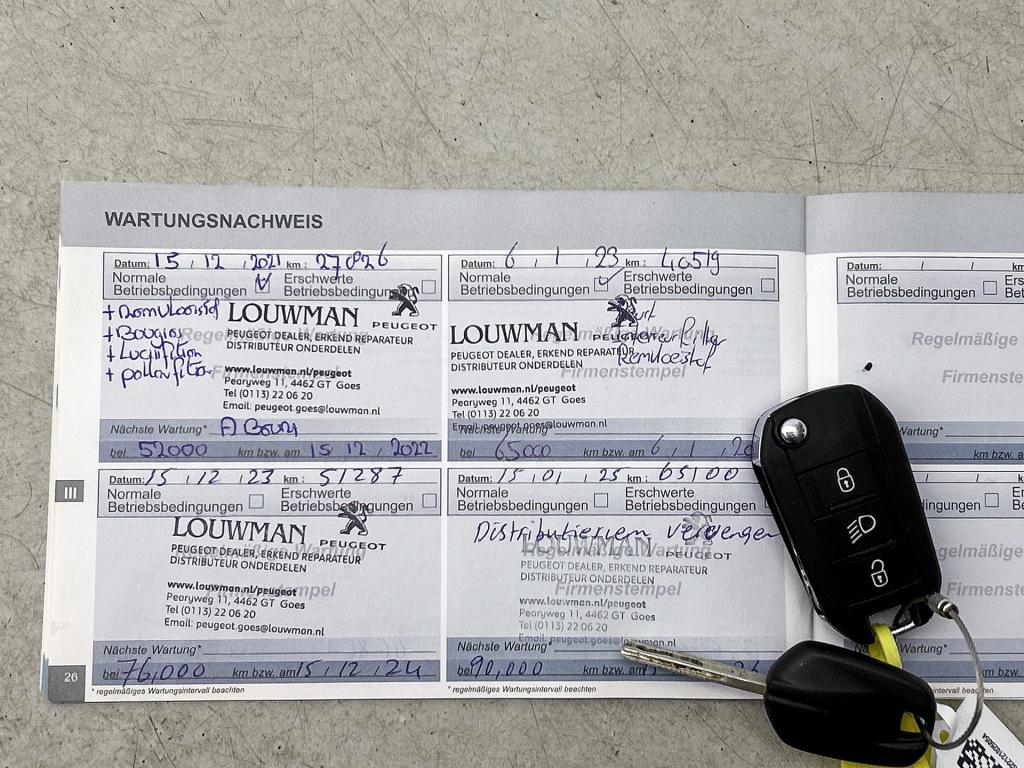 WARTUNGSNACHWEIS
Datum: 15 , 12 , 2021 km : 27826
Normale
Betriebsbedingungen
Erschwerte
Betriebsbedingungen
+ Remvloeistof
+ Bougies
+ Luchtfilter
+ pollenfilter
LOUWMAN
PEUGEOT
PEUGEOT DEALER, ERKEND REPARATEUR
DISTRIBUTEUR ONDERDELEN
www.louwman.nl/peugeot
Pearyweg 11, 4462 GT Goes
Tel (0113) 22 06 20
Email: peugeot.goes@louwman.nl
Nächste Wartung*
bei 52000 km bzw. am 15 12 , 2022
Datum: 6 , 1 , 23 km :
Normale
Betriebsbedingungen
Erschwerte
Betriebsbedingungen
LOUWMAN
PEUGEOT
PEUGEOT DEALER, ERKEND REPARATEUR
DISTRIBUTEUR ONDERDELEN
Firmenstempel
www.louwman.nl/peugeot
Pearyweg 11, 4462 GT Goes
Tel (0113) 22 06 20
Email: peugeot.goes@louwman.nl
Nächste Wartung*
bei 65000 km bzw. am 6 , 1 , 20
Datum: / / k
Normale
Betriebsbedingungen
Regelmäßige
Firmenste
Wartung*
km bzw. a
III
Datum: 15 , 12 , 23 km : 51287
Normale
Betriebsbedingungen
Erschwerte
Betriebsbedingungen
LOUWMAN
PEUGEOT
PEUGEOT DEALER, ERKEND REPARATEUR
DISTRIBUTEUR ONDERDELEN
Firmenstempel
www.louwman.nl/peugeot
Pearyweg 11, 4462 GT Goes
Tel (0113) 22 06 20
Email: peugeot.goes@louwman.nl
Nächste Wartung*
bei 76,000 km bzw. am 15 , 12 , 24
Datum: 15 , 01 , 25 km : 65100
Normale
Betriebsbedingungen
Erschwerte
Betriebsbedingungen
Distributieriem vervangen
LOUWMAN
Regelmäßige Wartung
PEUGEOT
PEUGEOT DEALER, ERKEND REPARATEUR
DISTRIBUTEUR ONDERDELEN
Firmenstempel
www.louwman.nl/peugeot
Pearyweg 11, 4462 GT Goes
Tel (0113) 22 06 20
Email: peugeot.goes@louwman.nl
Nächste Wartung*
bei 90,000 km bzw. am
26
* regelmäßiges Wartungsintervall beachten
* regelmäßiges Wartungsintervall beachten